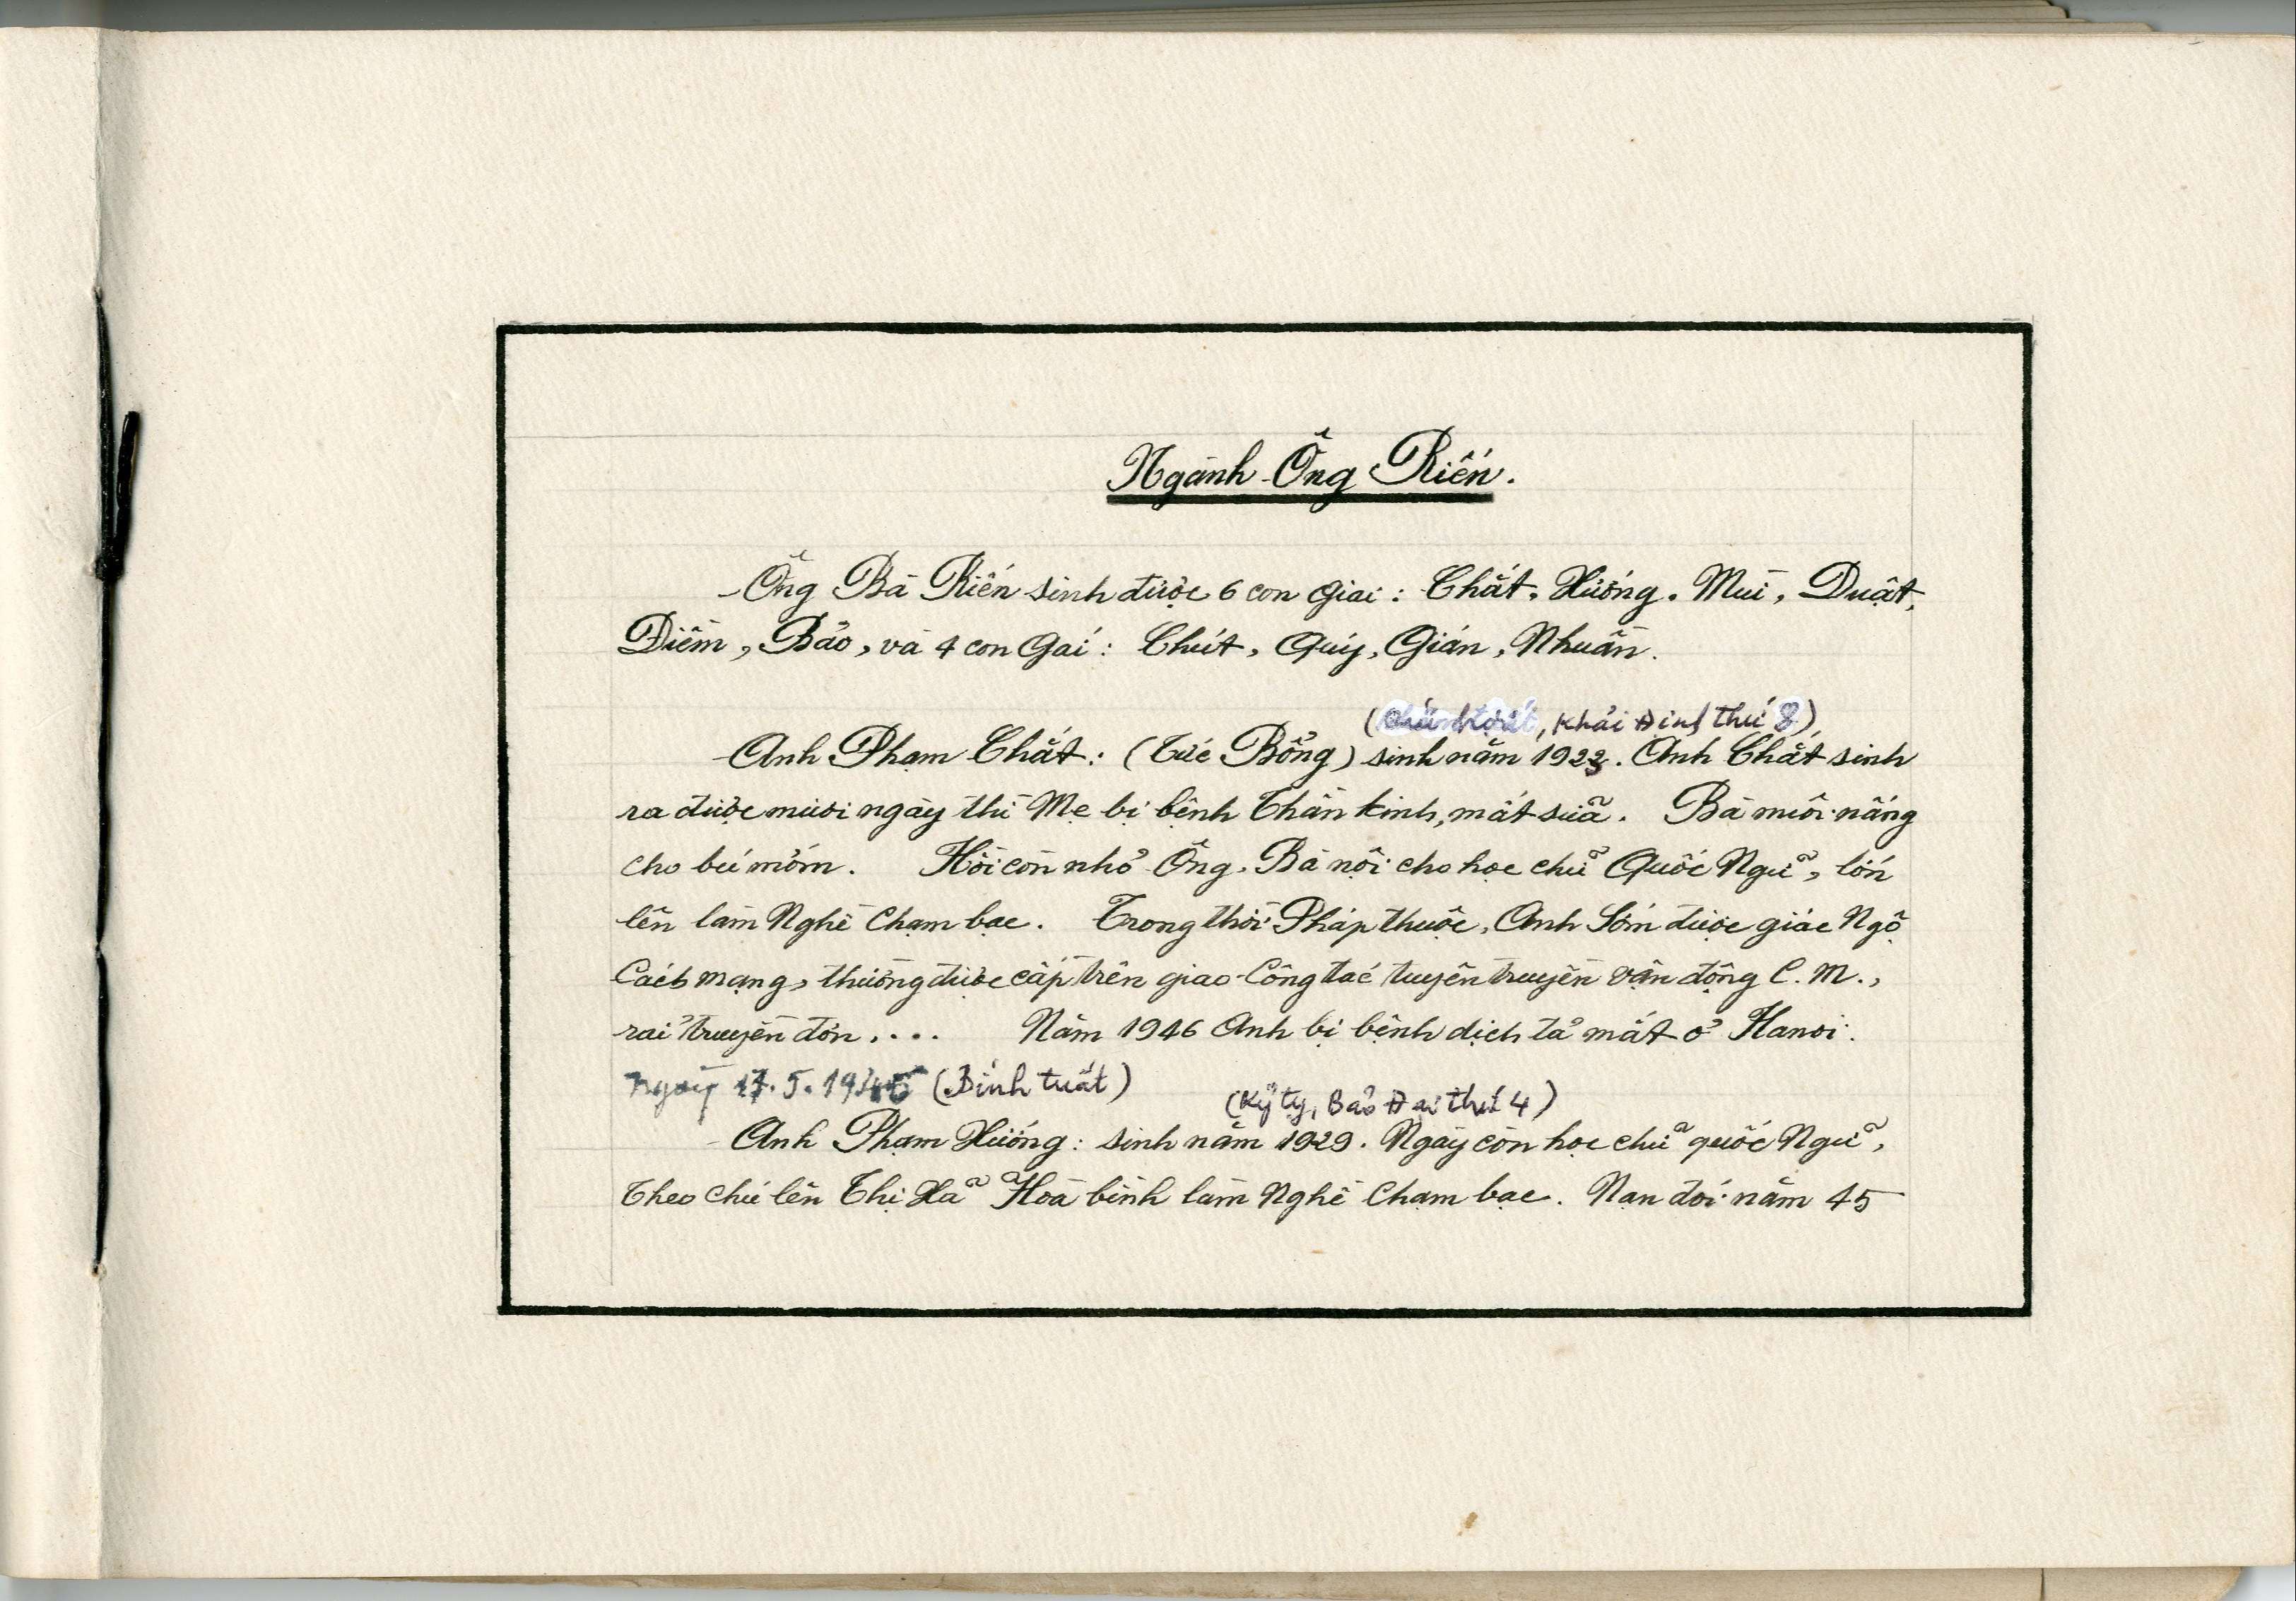 Ngành Ông Riến.
Ông Bà Riến sinh được 6 con giai: Chắt, Hướng, Mùi, Duật,
Điềm, Bảo, và 4 con Gái: Chút, Quý, Gián, Nhuần.
(, Khải Định thứ 8)
Anh Phạm Chắt: (Tức Bổng) sinh năm 1923. Anh Chắt sinh
ra được mười ngày thì Mẹ bị bệnh Thần kinh, mất sữa. Bà nuôi nấng
cho bú mớm. Hồi còn nhỏ Ông, Bà nội cho học chữ Quốc Ngữ, lớn
lên làm Nghề Chạm bạc. Trong thời Pháp thuộc, Anh Sớm được giác Ngộ
Cách mạng, thường được cấp trên giao Công tác tuyên truyền vận động C.M.,
rải truyền đơn.... Năm 1946 Anh bị bệnh dịch tả mất ở Hanoi.
Ngày 17.5. (Bính tuất)
(Kỷ tỵ, Bảo Đại thứ 4)
Anh Phạm Hướng: sinh năm 1929. Ngày còn học chữ quốc Ngữ,
Theo chú lên Thị Xã Hoà bình làm Nghề Chạm bạc. Nạn đói năm 45